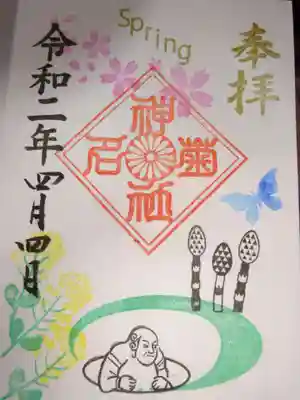 Spring
奉拝
菊名神社
令和二年四月四日